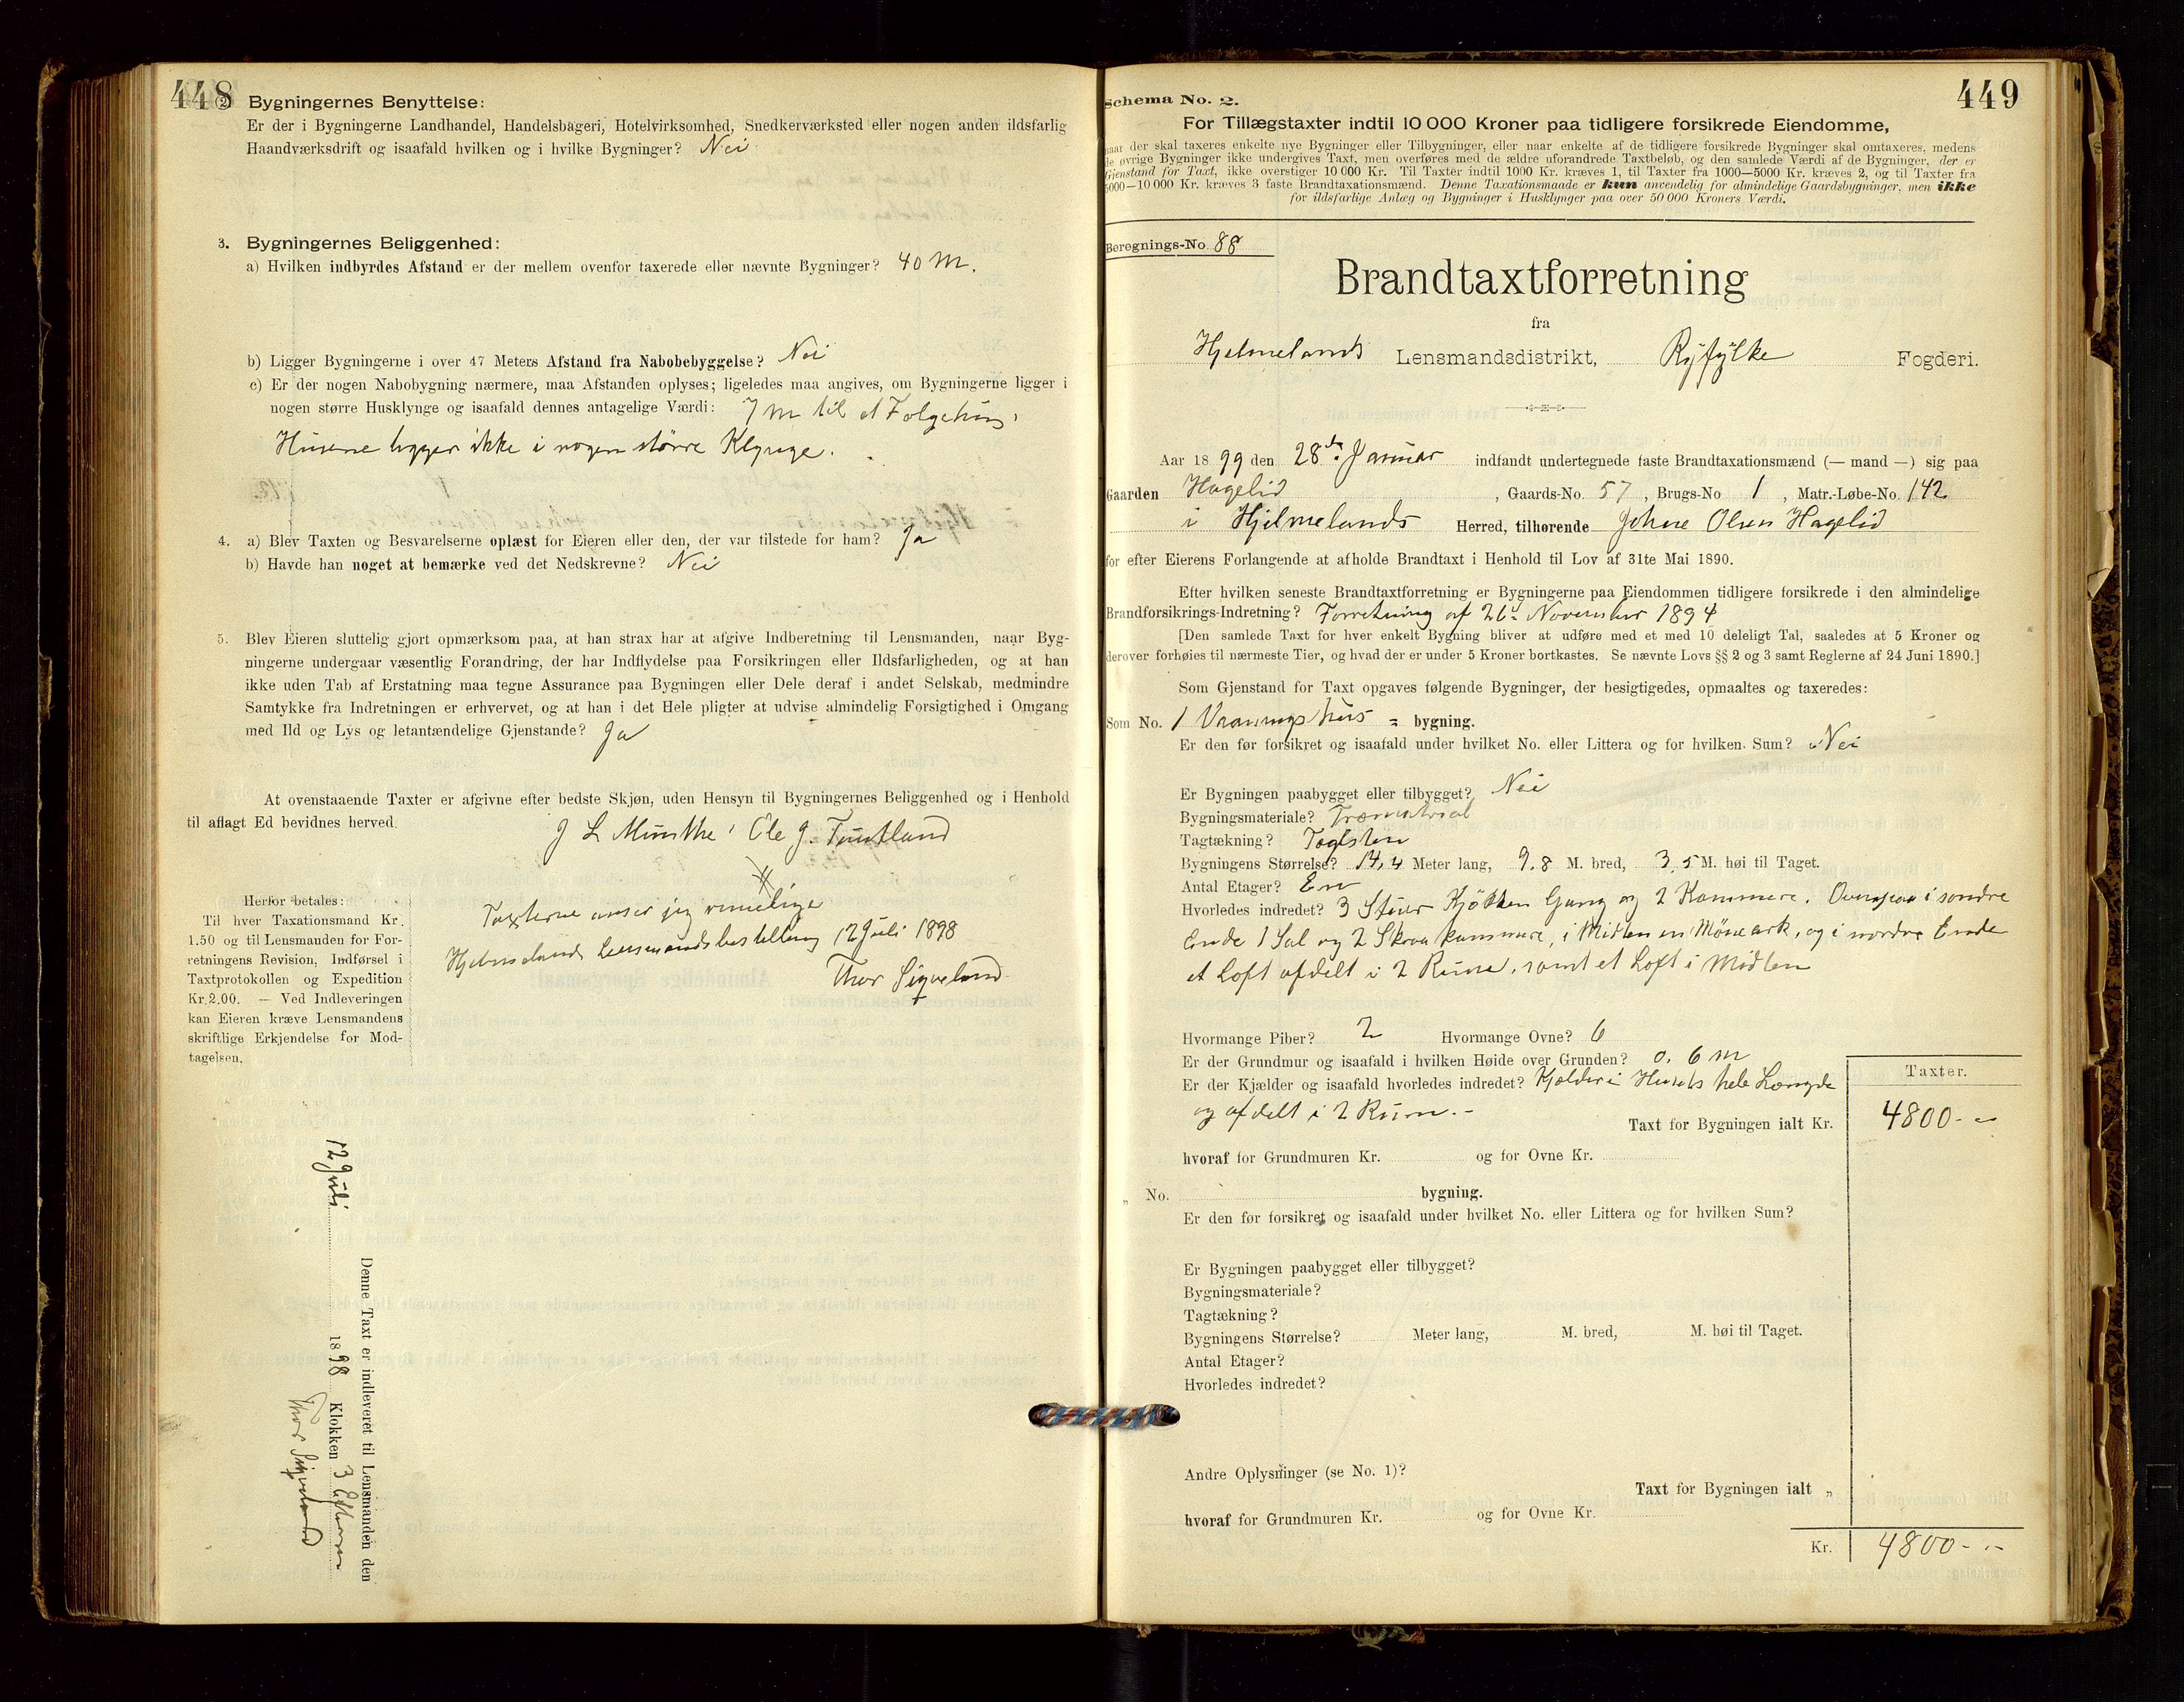 448
2. Bygningernes Benyttelse:
Er der i Bygningerne Landhandel, Handelsbageri, Hotelvirksomhed, Snedkerværksted eller nogen anden ildsfarlig
Haandværksdrift og isaafald hvilken og i hvilke Bygninger? Nei
3. Bygningernes Beliggenhed:
a) Hvilken indbyrdes Afstand er der mellem ovenfor taxerede eller nævnte Bygninger? 40 M.
b) Ligger Bygningerne i over 47 Meters Afstand fra Nabobebyggelse? Nei
c) Er der nogen Nabobygning nærmere, maa Afstanden oplyses; ligeledes maa angives, om Bygningerne ligger i
nogen større Husklynge og isaafald dennes antagelige Værdi: 7 m til et Folgehus,
Husene ligger ikke i nogen større Klynge.
4. a) Blev Taxten og Besvarelserne oplæst for Eieren eller den, der var tilstede for ham? Ja
b) Havde han noget at bemærke ved det Nedskrevne? Nei
5. Blev Eieren sluttelig gjort opmærksom paa, at han strax har at afgive Indberetning til Lensmanden, naar Byg-
ningerne undergaar væsentlig Forandring, der har Indflydelse paa Forsikringen eller Ildsfarligheden, og at han
ikke uden Tab af Erstatning maa tegne Assurance paa Bygningen eller Dele deraf i andet Selskab, medmindre
Samtykke fra Indretningen er erhvervet, og at han i det Hele pligter at udvise almindelig Forsigtighed i Omgang
med Ild og Lys og letantændelige Gjenstande? Ja
At ovenstaaende Taxter er afgivne efter bedste Skjøn, uden Hensyn til Bygningernes Beliggenhed og i Henhold
til aflagt Ed bevidnes herved.
J L Munthe Ole J. Tuntland
Herfor betales:
Til hver Taxationsmand Kr.
1.50 og til Lensmanden for For-
retningens Revision, Indførsel i
Taxtprotokollen og Expedition
Kr. 2.00. — Ved Indleveringen
kan Eieren kræve Lensmandens
skriftlige Erkjendelse for Mod-
tagelsen.
Taxterne anser jeg rimelige
Hjelmelands Lensmandsbestilling 12 Juli 1898
Thor Sigveland
Denne Taxt er indleveret til Lensmanden den
12 Juli 1898 Klokken 3 Efterm
Thor Sigveland
449
Schema No. 2.
For Tillægstaxter indtil 10 000 Kroner paa tidligere forsikrede Eiendomme,
naar der skal taxeres enkelte nye Bygninger eller Tilbygninger, eller naar enkelte af de tidligere forsikrede Bygninger skal omtaxeres, medens
de øvrige Bygninger ikke undergives Taxt, men overføres med de ældre uforandrede Taxtbeløb, og den samlede Værdi af de Bygninger, der er
Gjenstand for Taxt, ikke overstiger 10 000 Kr. Til Taxter indtil 1000 Kr. kræves 1, til Taxter fra 1000—5000 Kr. kræves 2, og til Taxter fra
5000—10 000 Kr. kræves 3 faste Brandtaxationsmænd. Denne Taxationsmaade er kun anvendelig for almindelige Gaardsbygninger, men ikke
for ildsfarlige Anlæg og Bygninger i Husklynger paa over 50 000 Kroners Værdi.
Beregnings-No. 88
Brandtaxtforretning
fra
Hjelmelands Lensmandsdistrikt, Ryfylke Fogderi.
Aar 1899 den 28de Januar indfandt undertegnede faste Brandtaxationsmænd (— mand —) sig paa
Gaarden Hagelid, Gaards-No. 57, Brugs-No 1, Matr.-Løbe-No. 142
i Hjelmelands Herred, tilhørende Johne Olsen Hagelid
for efter Eierens Forlangende at afholde Brandtaxt i Henhold til Lov af 31te Mai 1890.
Efter hvilken seneste Brandtaxtforretning er Bygningerne paa Eiendommen tidligere forsikrede i den almindelige
Brandforsikrings-Indretning? Forretning af November 1894
[Den samlede Taxt for hver enkelt Bygning bliver at udføre med et med 10 deleligt Tal, saaledes at 5 Kroner og
derover forhøies til nærmeste Tier, og hvad der er under 5 Kroner bortkastes. Se nævnte Lovs §§ 2 og 3 samt Reglerne af 24 Juni 1890.]
Som Gjenstand for Taxt opgaves følgende Bygninger, der besigtigedes, opmaaltes og taxeredes:
Som No. 1 Vaaningshus = bygning.
Er den før forsikret og isaafald under hvilket No. eller Littera og for hvilken Sum? Nei
Er Bygningen paabygget eller tilbygget? Nei
Bygningsmateriale? Træmaterial
Tagtækning? Taglsten
Bygningens Størrelse? 14,4 Meter lang, 9.8 M. bred, 3,5 M. høi til Taget.
Antal Etager? En
Hvorledes indredet? 3 Stuer Kjøkken Gang og 2 Kammere. Ovenpaa i søndre
Ende 1 Sal og 2 Skraakammere, i Midten en Møneark, og i nordre Ende
et Loft afdelt i 2 Rum, samt et Loft i Midten
Hvormange Piber? 2 Hvormange Ovne? 6
Er der Grundmur og isaafald i hvilken Høide over Grunden? 0.6 m
Er der Kjælder og isaafald hvorledes indredet? Kjælder i Husets hele Længde
og afdelt i 2 Rum.-
Taxter.
Taxt for Bygningen ialt Kr. 4800- -
hvoraf for Grundmuren Kr. og for Ovne Kr.
„ No. bygning.
Er den før forsikret og isaafald under hvilket No. eller Littera og for hvilken Sum?
Er Bygningen paabygget eller tilbygget?
Bygningsmateriale?
Tagtækning?
Bygningens Størrelse? Meter lang, M. bred, M. høi til Taget.
Antal Etager?
Hvorledes indredet?
Andre Oplysninger (se No. 1)?
Taxt for Bygningen ialt „
hvoraf for Grundmuren Kr. og for Ovne Kr.
Kr. 4800- -